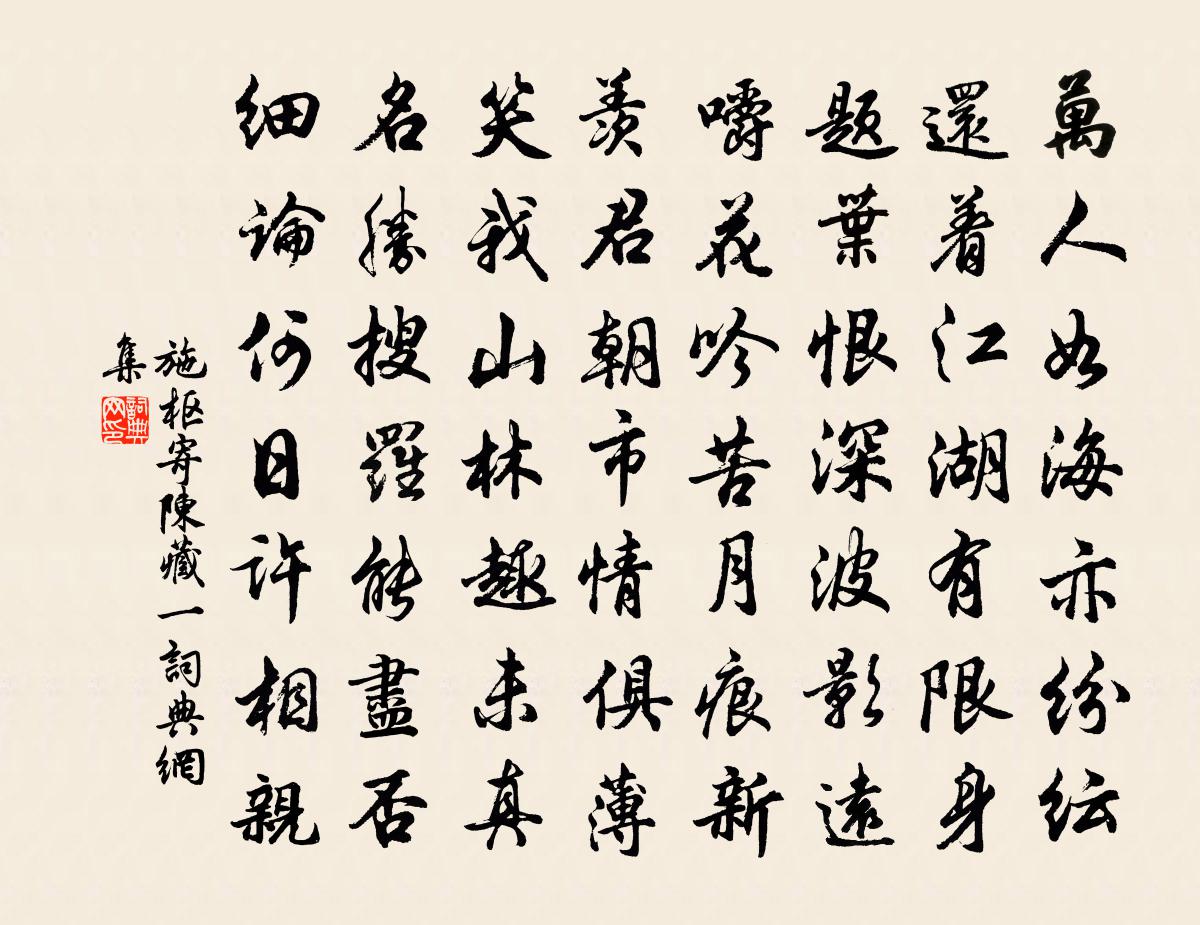 萬人如海亦紛紜
還着江湖有限身
題葉恨深波影遠
嚼花吟苦月痕新
羨君朝市情俱薄
笑我山林趣未真
名勝搜羅能盡否
細論何日許相親
施枢寄陳藏一詞典網
集
詞典网印